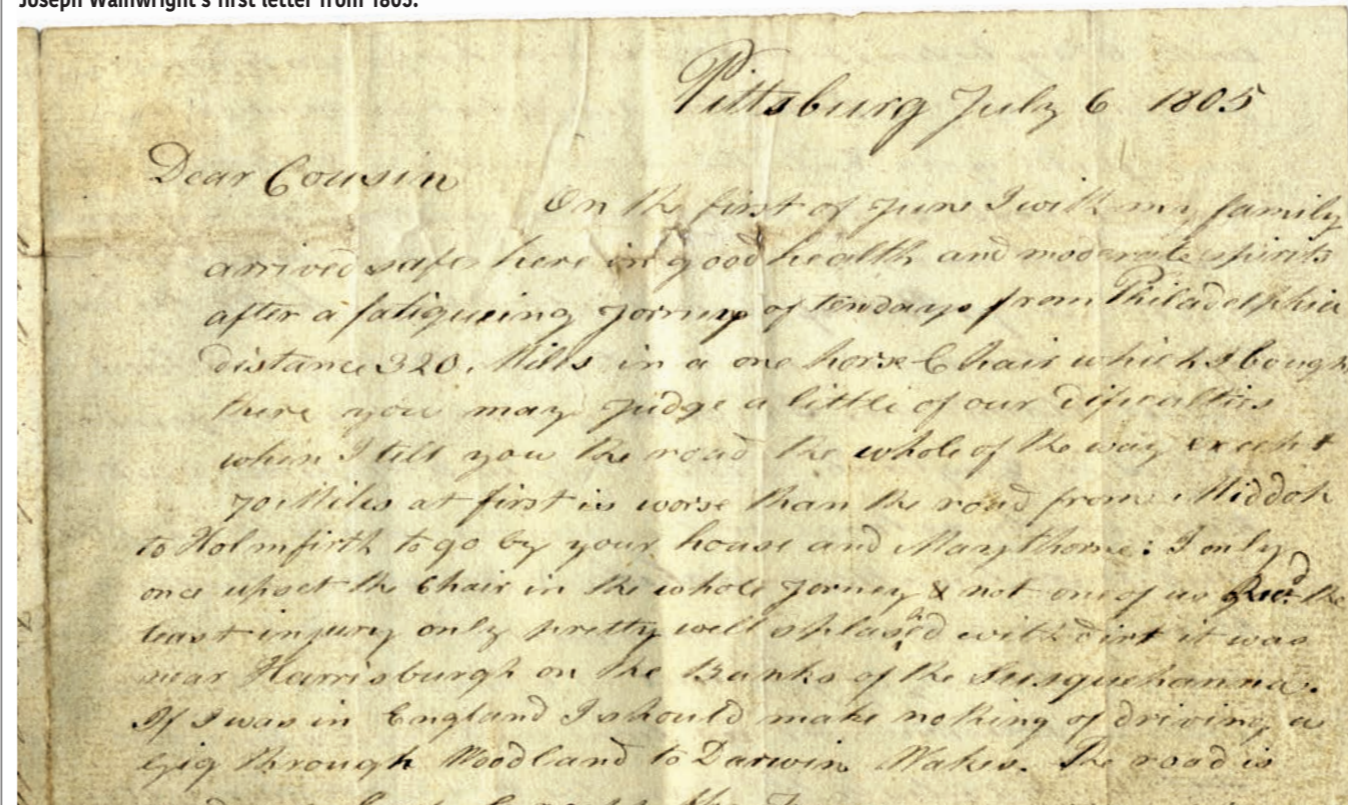 Joseph Wainwright's first letter from 1805.
Pittsburg July 6 1805
Dear Cousin
On the first of June I with my family
arrived safe here in good health and moderate spirits
after a fatigueing Jorney of ten days from Philadelphia
distance 320. Miles in a one horse Chair which I bough
there you may judge a little of our dificulties
when I tell you the road the whole of the way except
70 Miles at first is worse than the road from
to Holmfirth to go by your house and Maythorne: I only
once upset the Chair in the whole Jorney & not one of us Recd the
least injury only pretty well splashd with dirt it was
near Harrisburgh on the Banks of the Susquehanna.
If I was in England I should make nothing of driving a
Gig through Woodland to Darwin Wakes. The road is